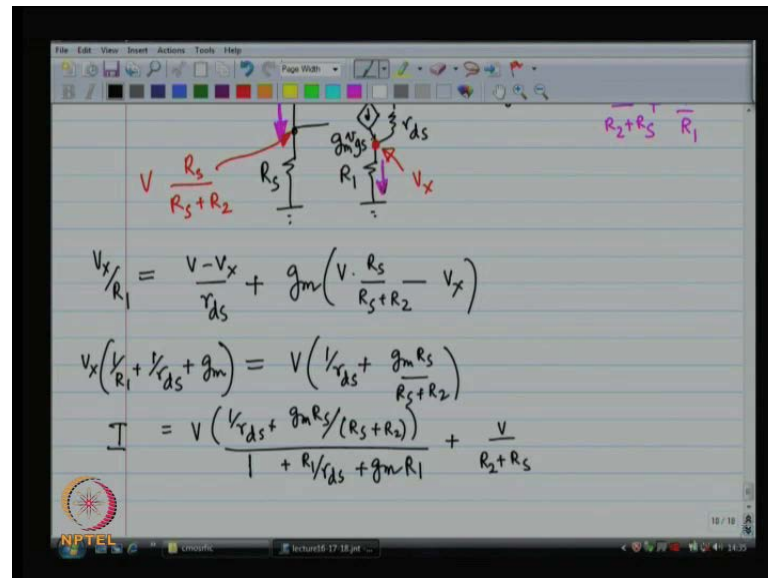 File Edit View Insert Actions Tools Help
Page Width
g_m v_gs r_ds
R_2+R_S R_1
V R_S/(R_S+R_2) R_S R_1 V_x
V_x/R_1 = (V-V_x)/r_ds + g_m(V · R_S/(R_S+R_2) - V_x)
V_x(1/R_1 + 1/r_ds + g_m) = V(1/r_ds + g_m R_S/(R_S+R_2))
I = V(1/r_ds + g_m R_S/(R_S+R_2))/(1 + R_1/r_ds + g_m R_1) + V/(R_2+R_S)
18 / 18
NPTEL
cmosrfic lecture16-17-18.jnt -... 14:35